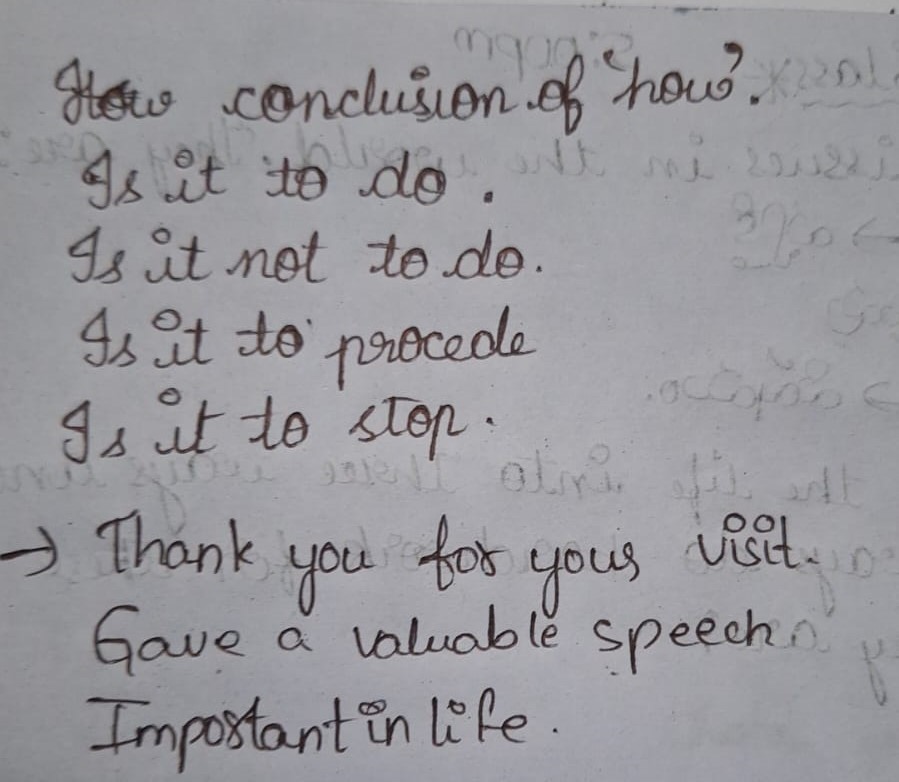 How conclusion of "how".
Is it to do.
Is it not to do.
Is it to procede
Is it to stop.
→ Thank you for your visit.
Gave a valuable speech
Important in life.